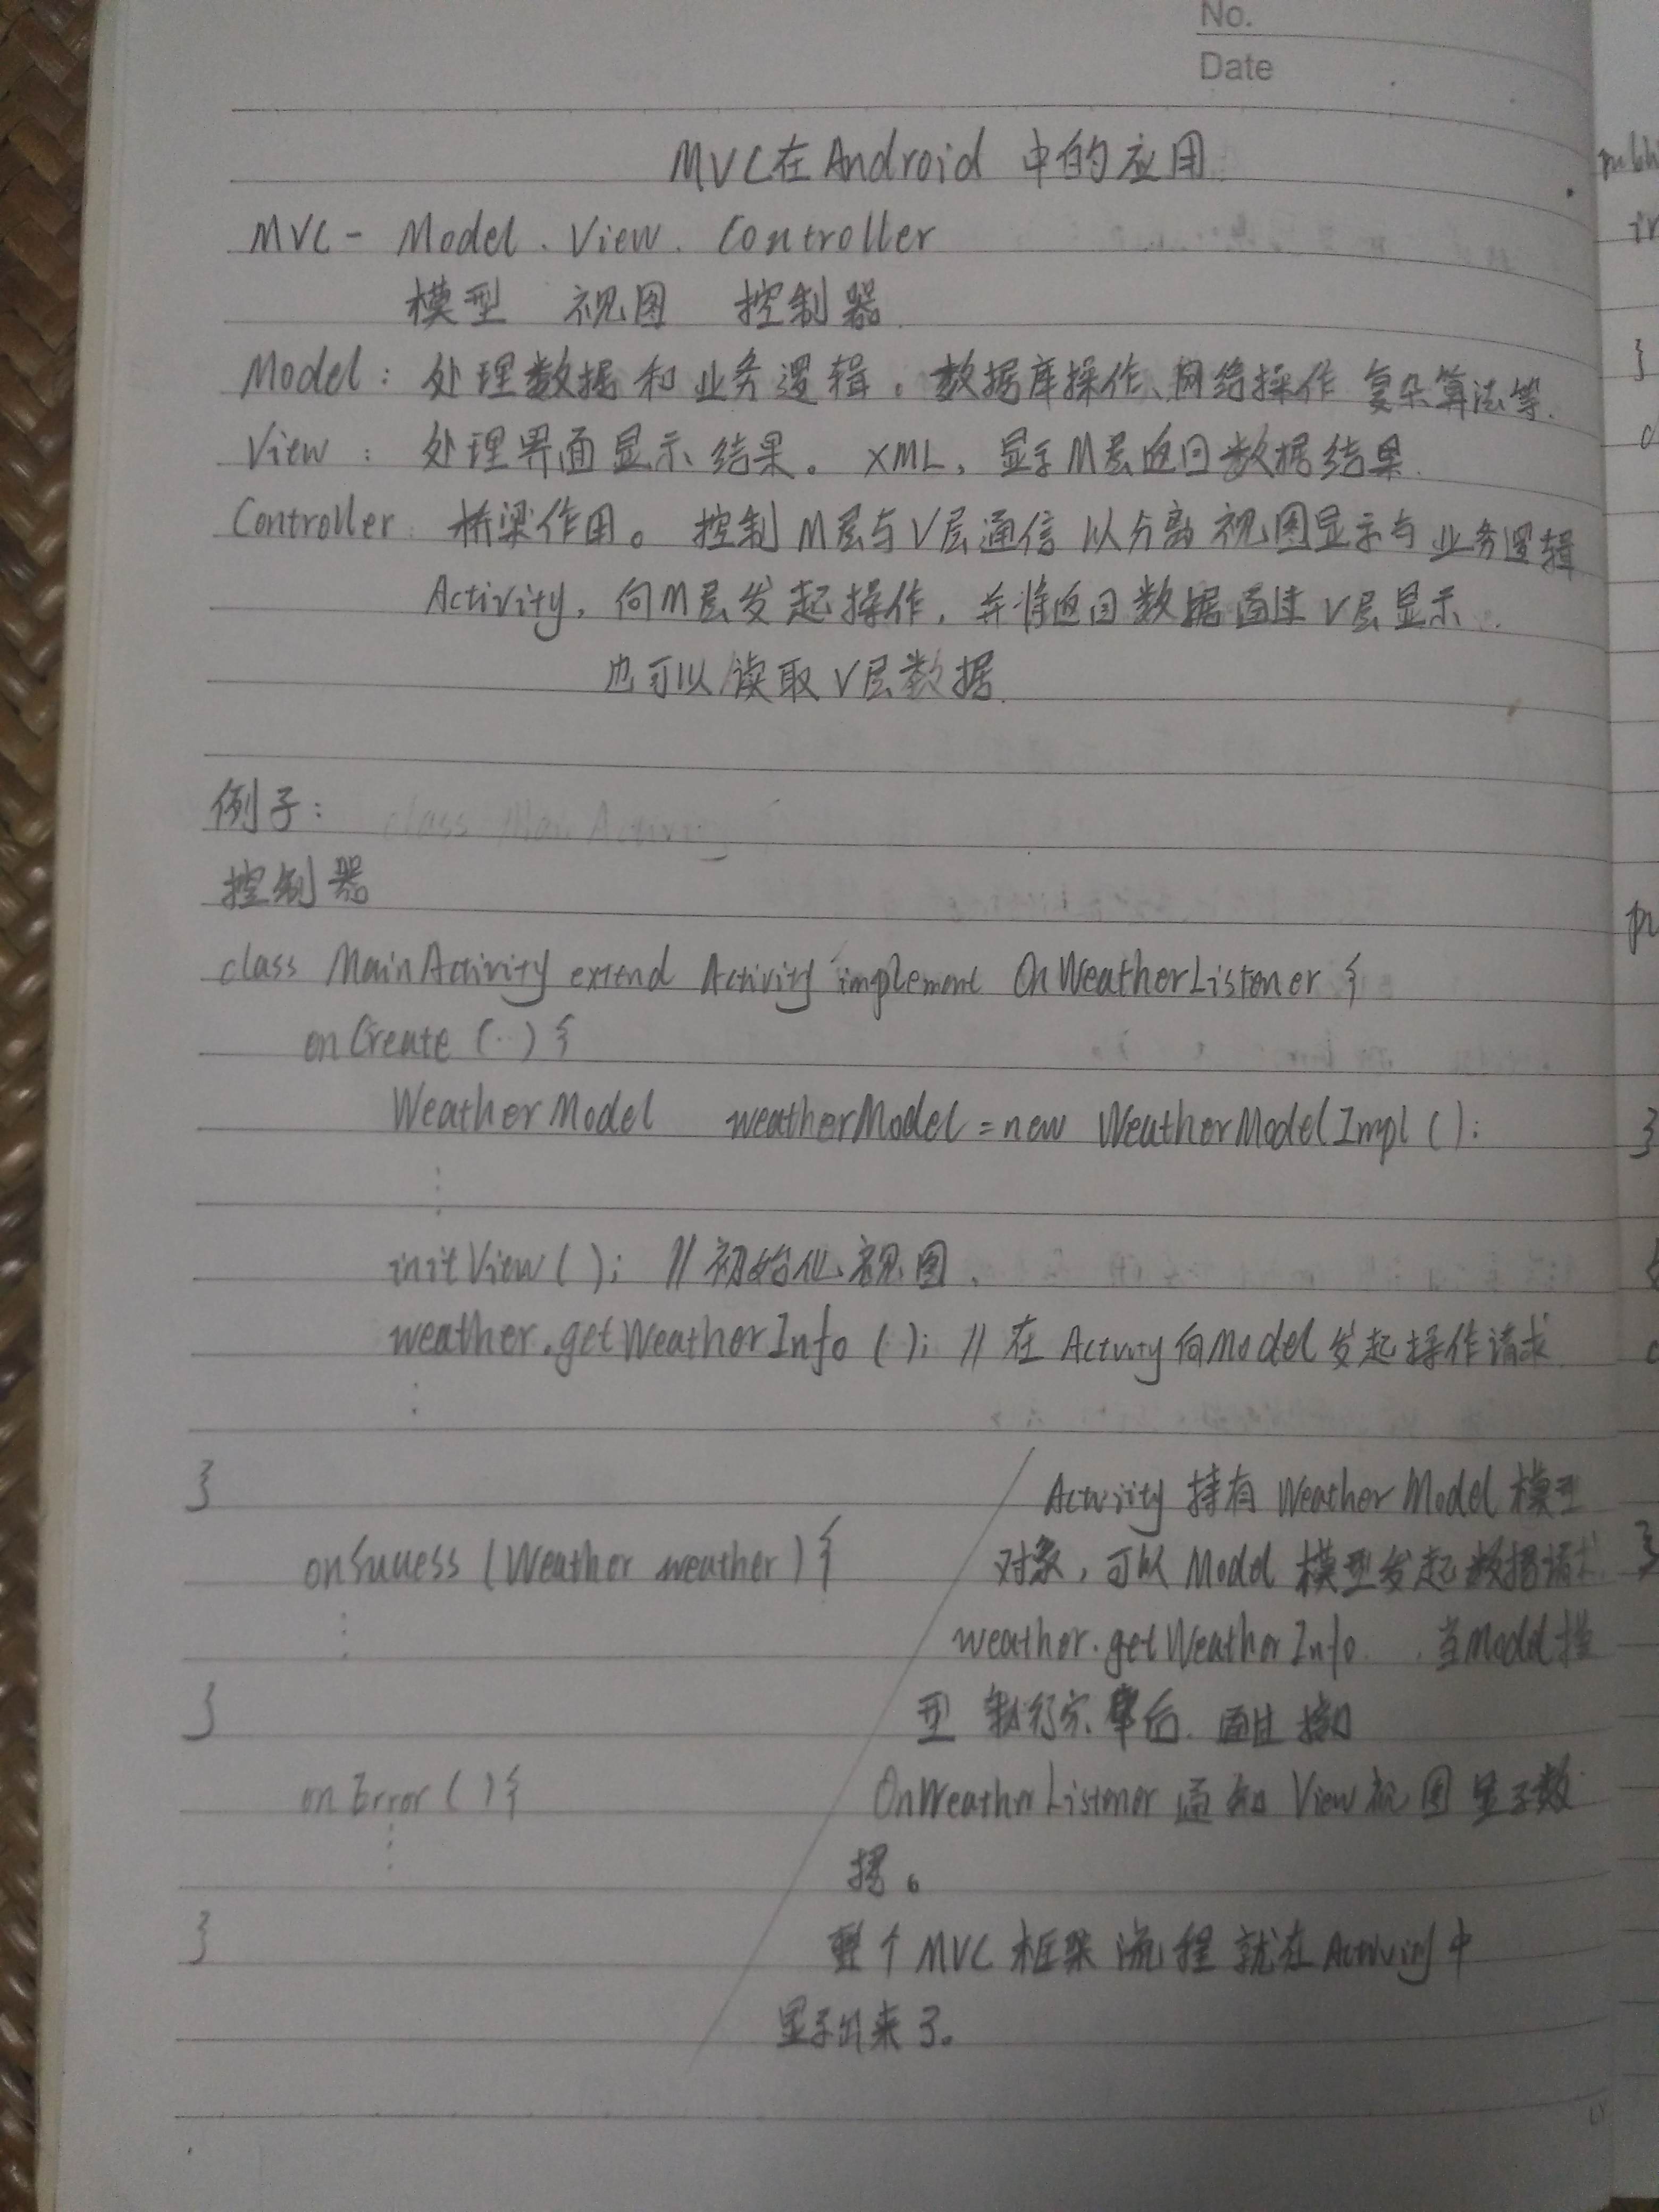 No.
Date
MVC在Android 中的应用
MVC - Model . View . Controller
模型 视图 控制器
Model : 处理数据和业务逻辑。数据库操作、网络操作 复杂算法等.
View : 处理界面显示结果。 XML, 显示M层返回数据结果.
Controller: 桥梁作用。 控制M层与V层通信 以分离 视图显示与业务逻辑
Activity, 向M层发起操作, 并将返回数据通过V层显示.
也可以读取V层数据.
例子:
class Main Activity
控制器
class MainActivity extend Activity implement OnWeatherListener {
onCreate (..) {
WeatherModel weatherModel = new WeatherModelImpl ();
initView ( ); // 初始化视图.
weather.getWeatherInfo ( ); // 在 Activity向Model发起操作请求
}
Activity 持有 WeatherModel 模型
onSuccess (Weather weather) {
对象, 可以 Model 模型发起数据请求
weather.getWeatherInfo. . 当Model模
}
型 执行完毕后. 通过 接口
onError ( ) {
OnWeatherListener 通知 View视图显示数
据。
}
整个MVC 框架流程就在Activity中
显示出来了。